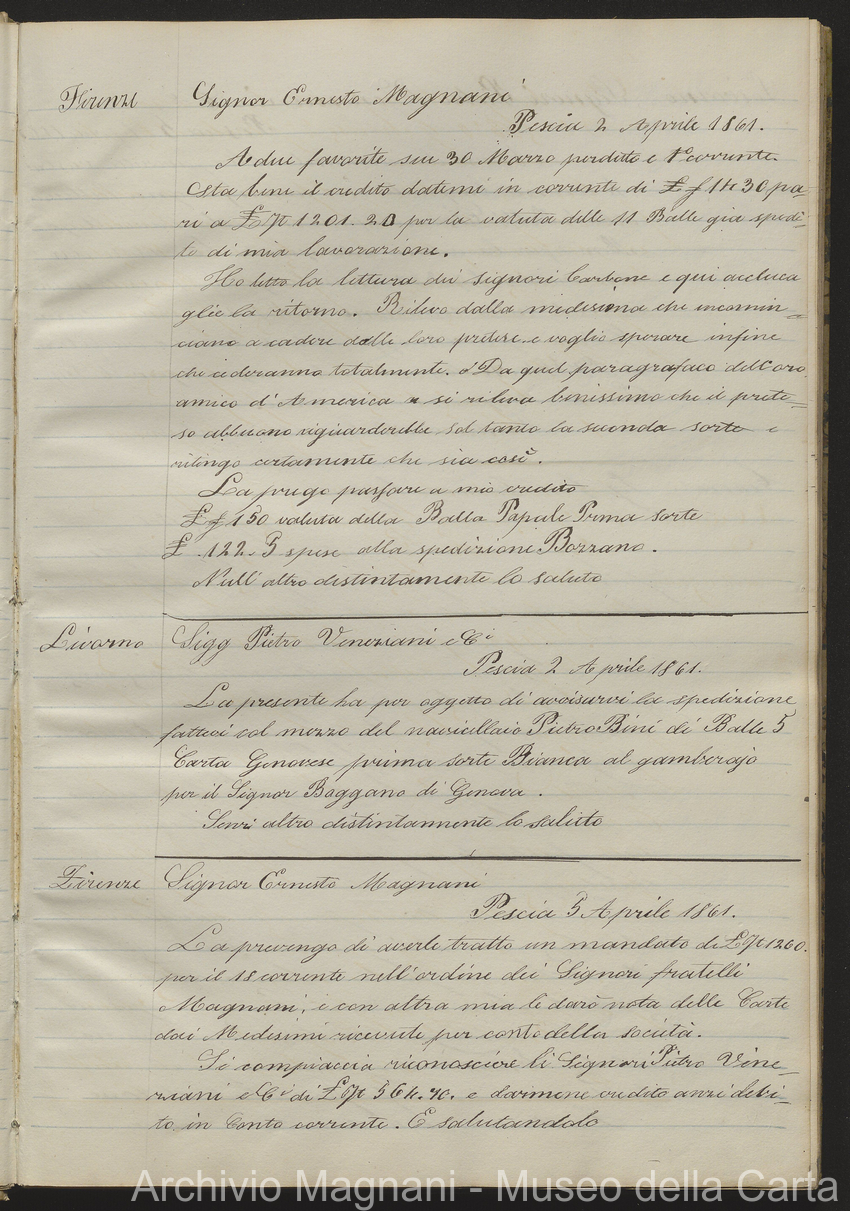 Firenze Signor Ernesto Magnani
Pescia 2 Aprile 1861.
A due favorite sue 30 Marzo perdetto e 1° corrente.
Sta bene il credito datemi in corrente di £ f 1430 pa-
ri a £ 1201. 20 per la valuta delle 11 Balle gia spedi-
te di mia lavorazione.
Ho letto la lettura dei signori Carbone e qui acclusa
gliè la ritorno. Rilevo dalla medesima che incomin=
ciano a cadere dalle loro pretese e voglio sperare infine
che cederanno totalmente. Da quel paragrafaco del loro
amico d'America si rileva benissimo che il prete=
so abbuono riguarderebbe sol tanto la seconda sorte e
ritengo certamente che sia così.
La prego passare a mio credito
£ f 150 valuta della Balla Papale Prima sorte
£ .122.5 spese alla spedizione Bozzano.
Null'altro distintamente lo saluto
Livorno Sigg Pietro Veneziani e Ci
Pescia 2 Aprile 1861.
La presente ha per oggetto di avvisarvi la spedizione
fattevi col mezzo del navicellaio Pietro Bini di Balle 5
Carta Genovese prima sorte Bianca al gamberajo
per il Signor Baggano di Genova.
Senz altro distintamente lo saluto
Firenze Signor Ernesto Magnani
Pescia 5 Aprile 1861.
La prevengo di averle tratto un mandato di £ 1260.
per il 18 corrente nell'ordine dei Signori fratelli
Magnani, e con altra mia le darò nota delle Carte
dai Medesimi ricevute per conto della società.
Si compiaccia riconoscere li Signori Pietro Vene=
ziani e Ci di £ 564. e darmene credito anzi debi-
to in Conto corrente. E salutandolo
Archivio Magnani - Museo della Carta